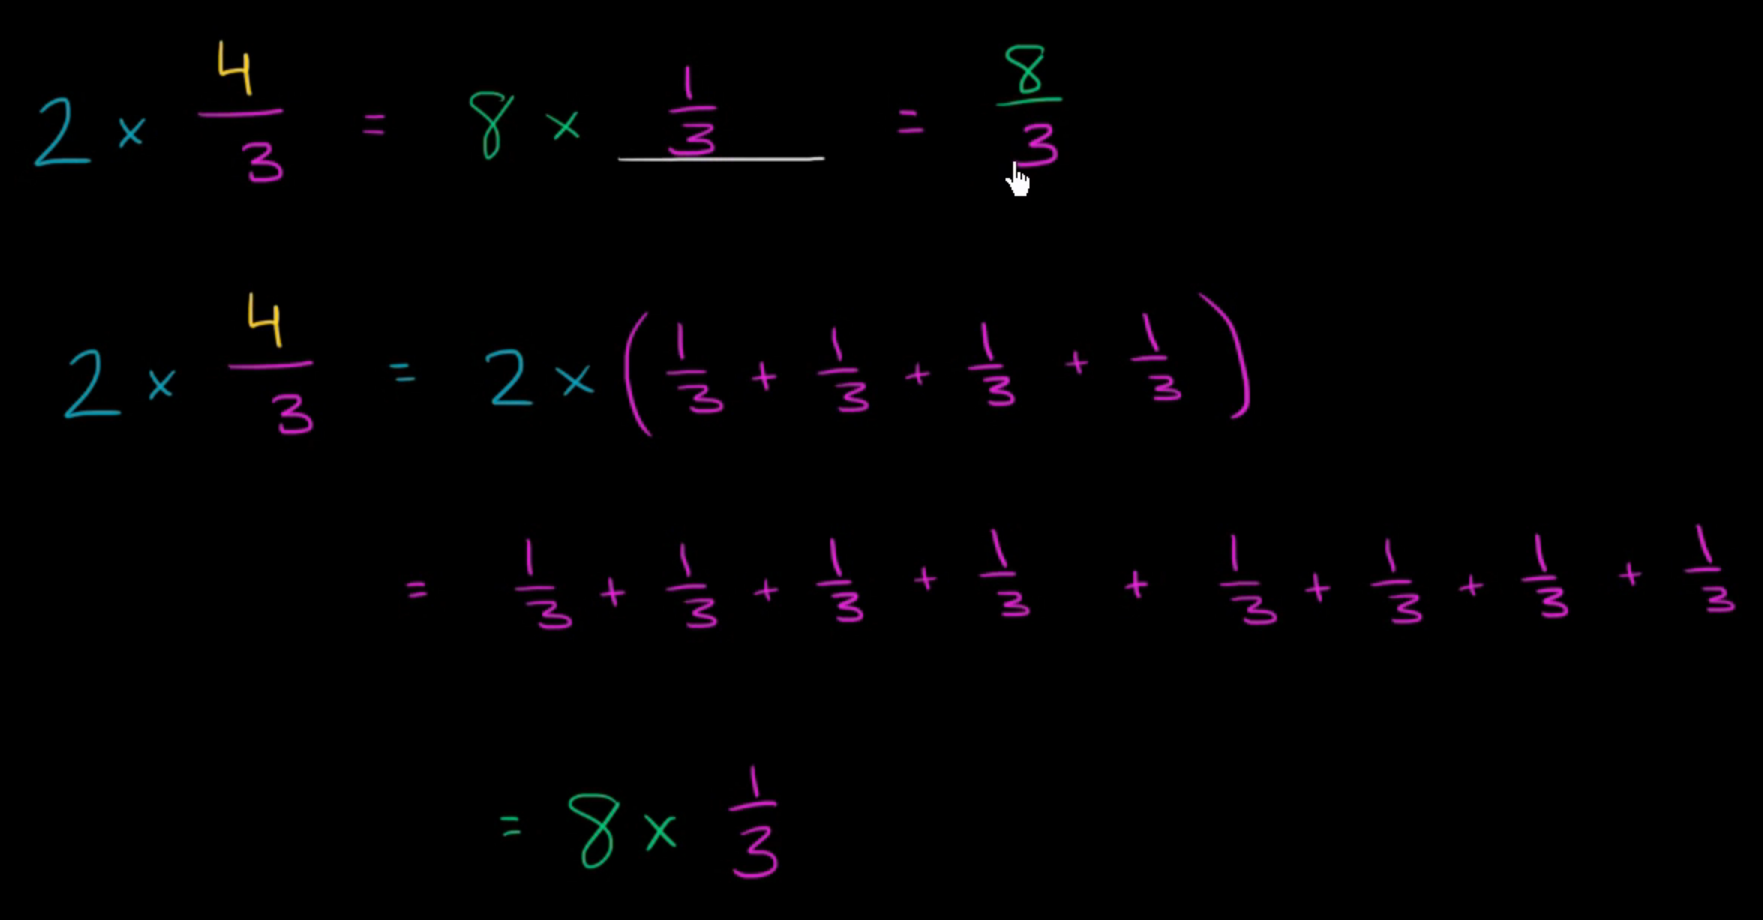 2 × 4/3 = 8 × 1/3 = 8/3
2 × 4/3 = 2 × (1/3 + 1/3 + 1/3 + 1/3)
= 1/3 + 1/3 + 1/3 + 1/3 + 1/3 + 1/3 + 1/3 + 1/3
= 8 × 1/3